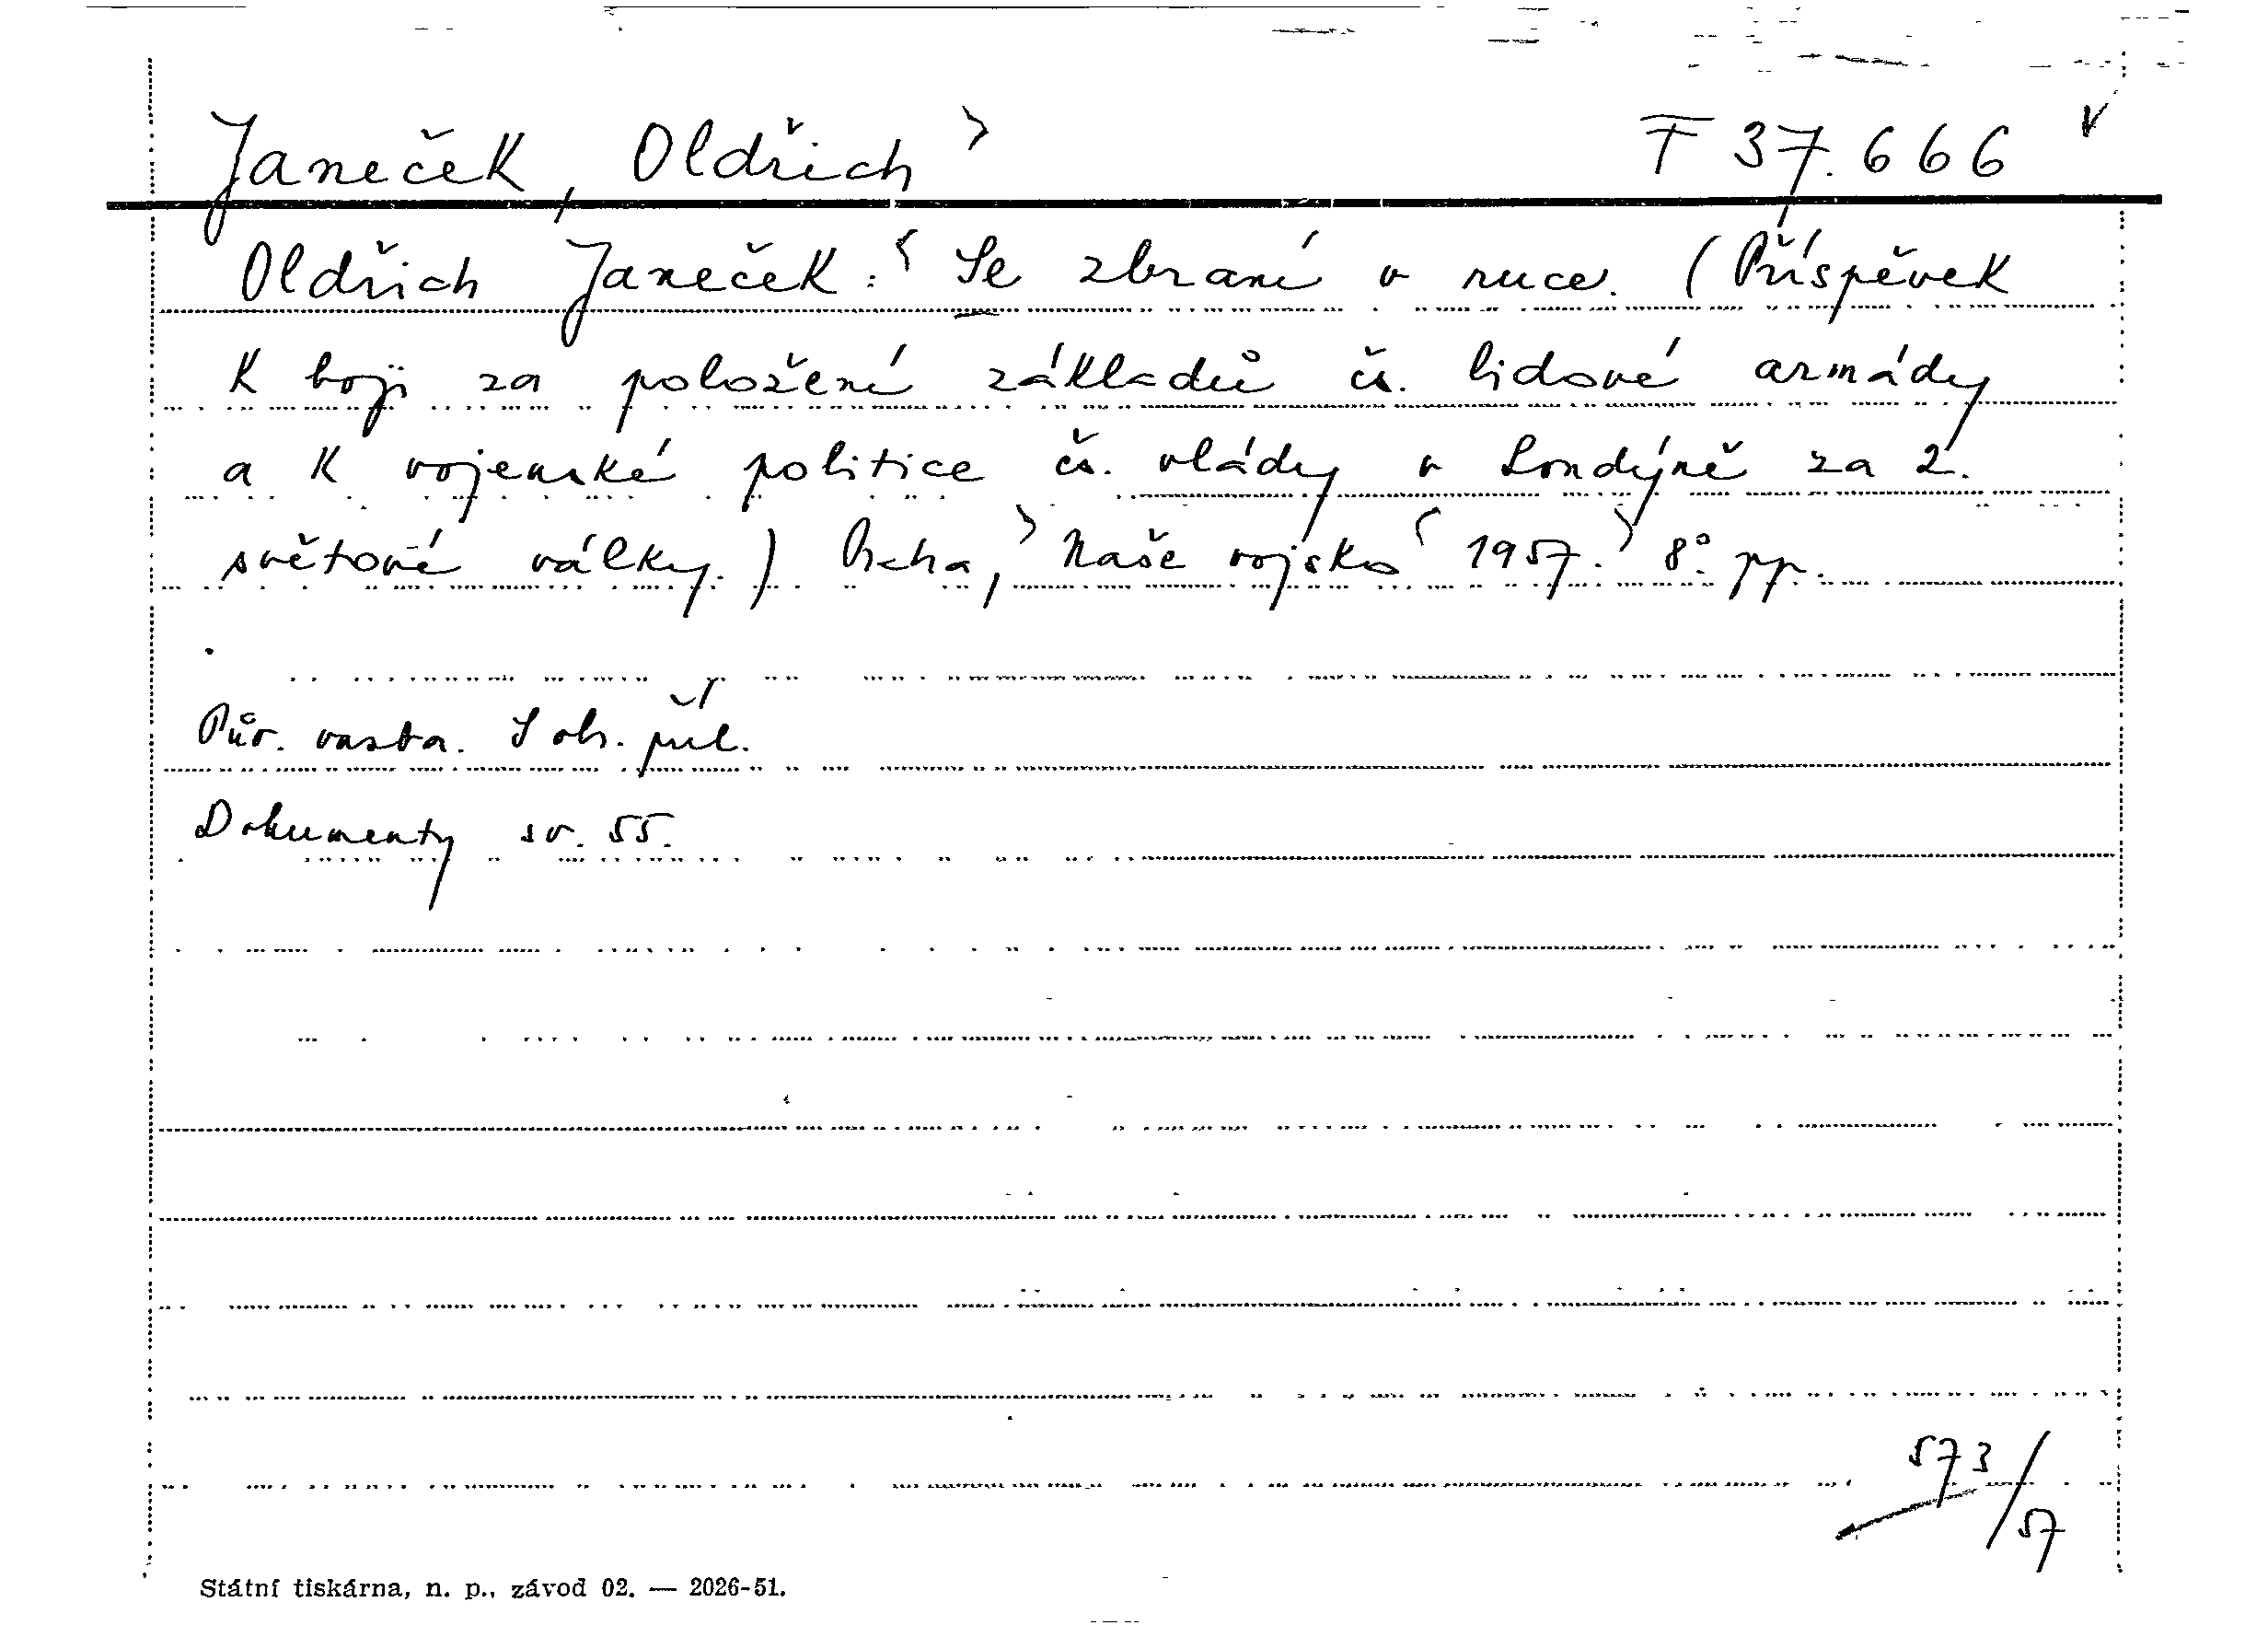 Janeček, Oldřich> F 37.666 v
Oldřich Janeček:< Se zbraní v ruce. (Příspěvek
K boji za položení základů čs. lidové armády
a K vojenské politice čs. vlády v Londýně za 2.
světové války.) Praha,> Naše vojsko< 1957.> 8°. pp.
Pův. vazba. S ob. příl.
Dokumenty sv. 55.
573/57
Státní tiskárna, n. p., závod 02. — 2026-51.